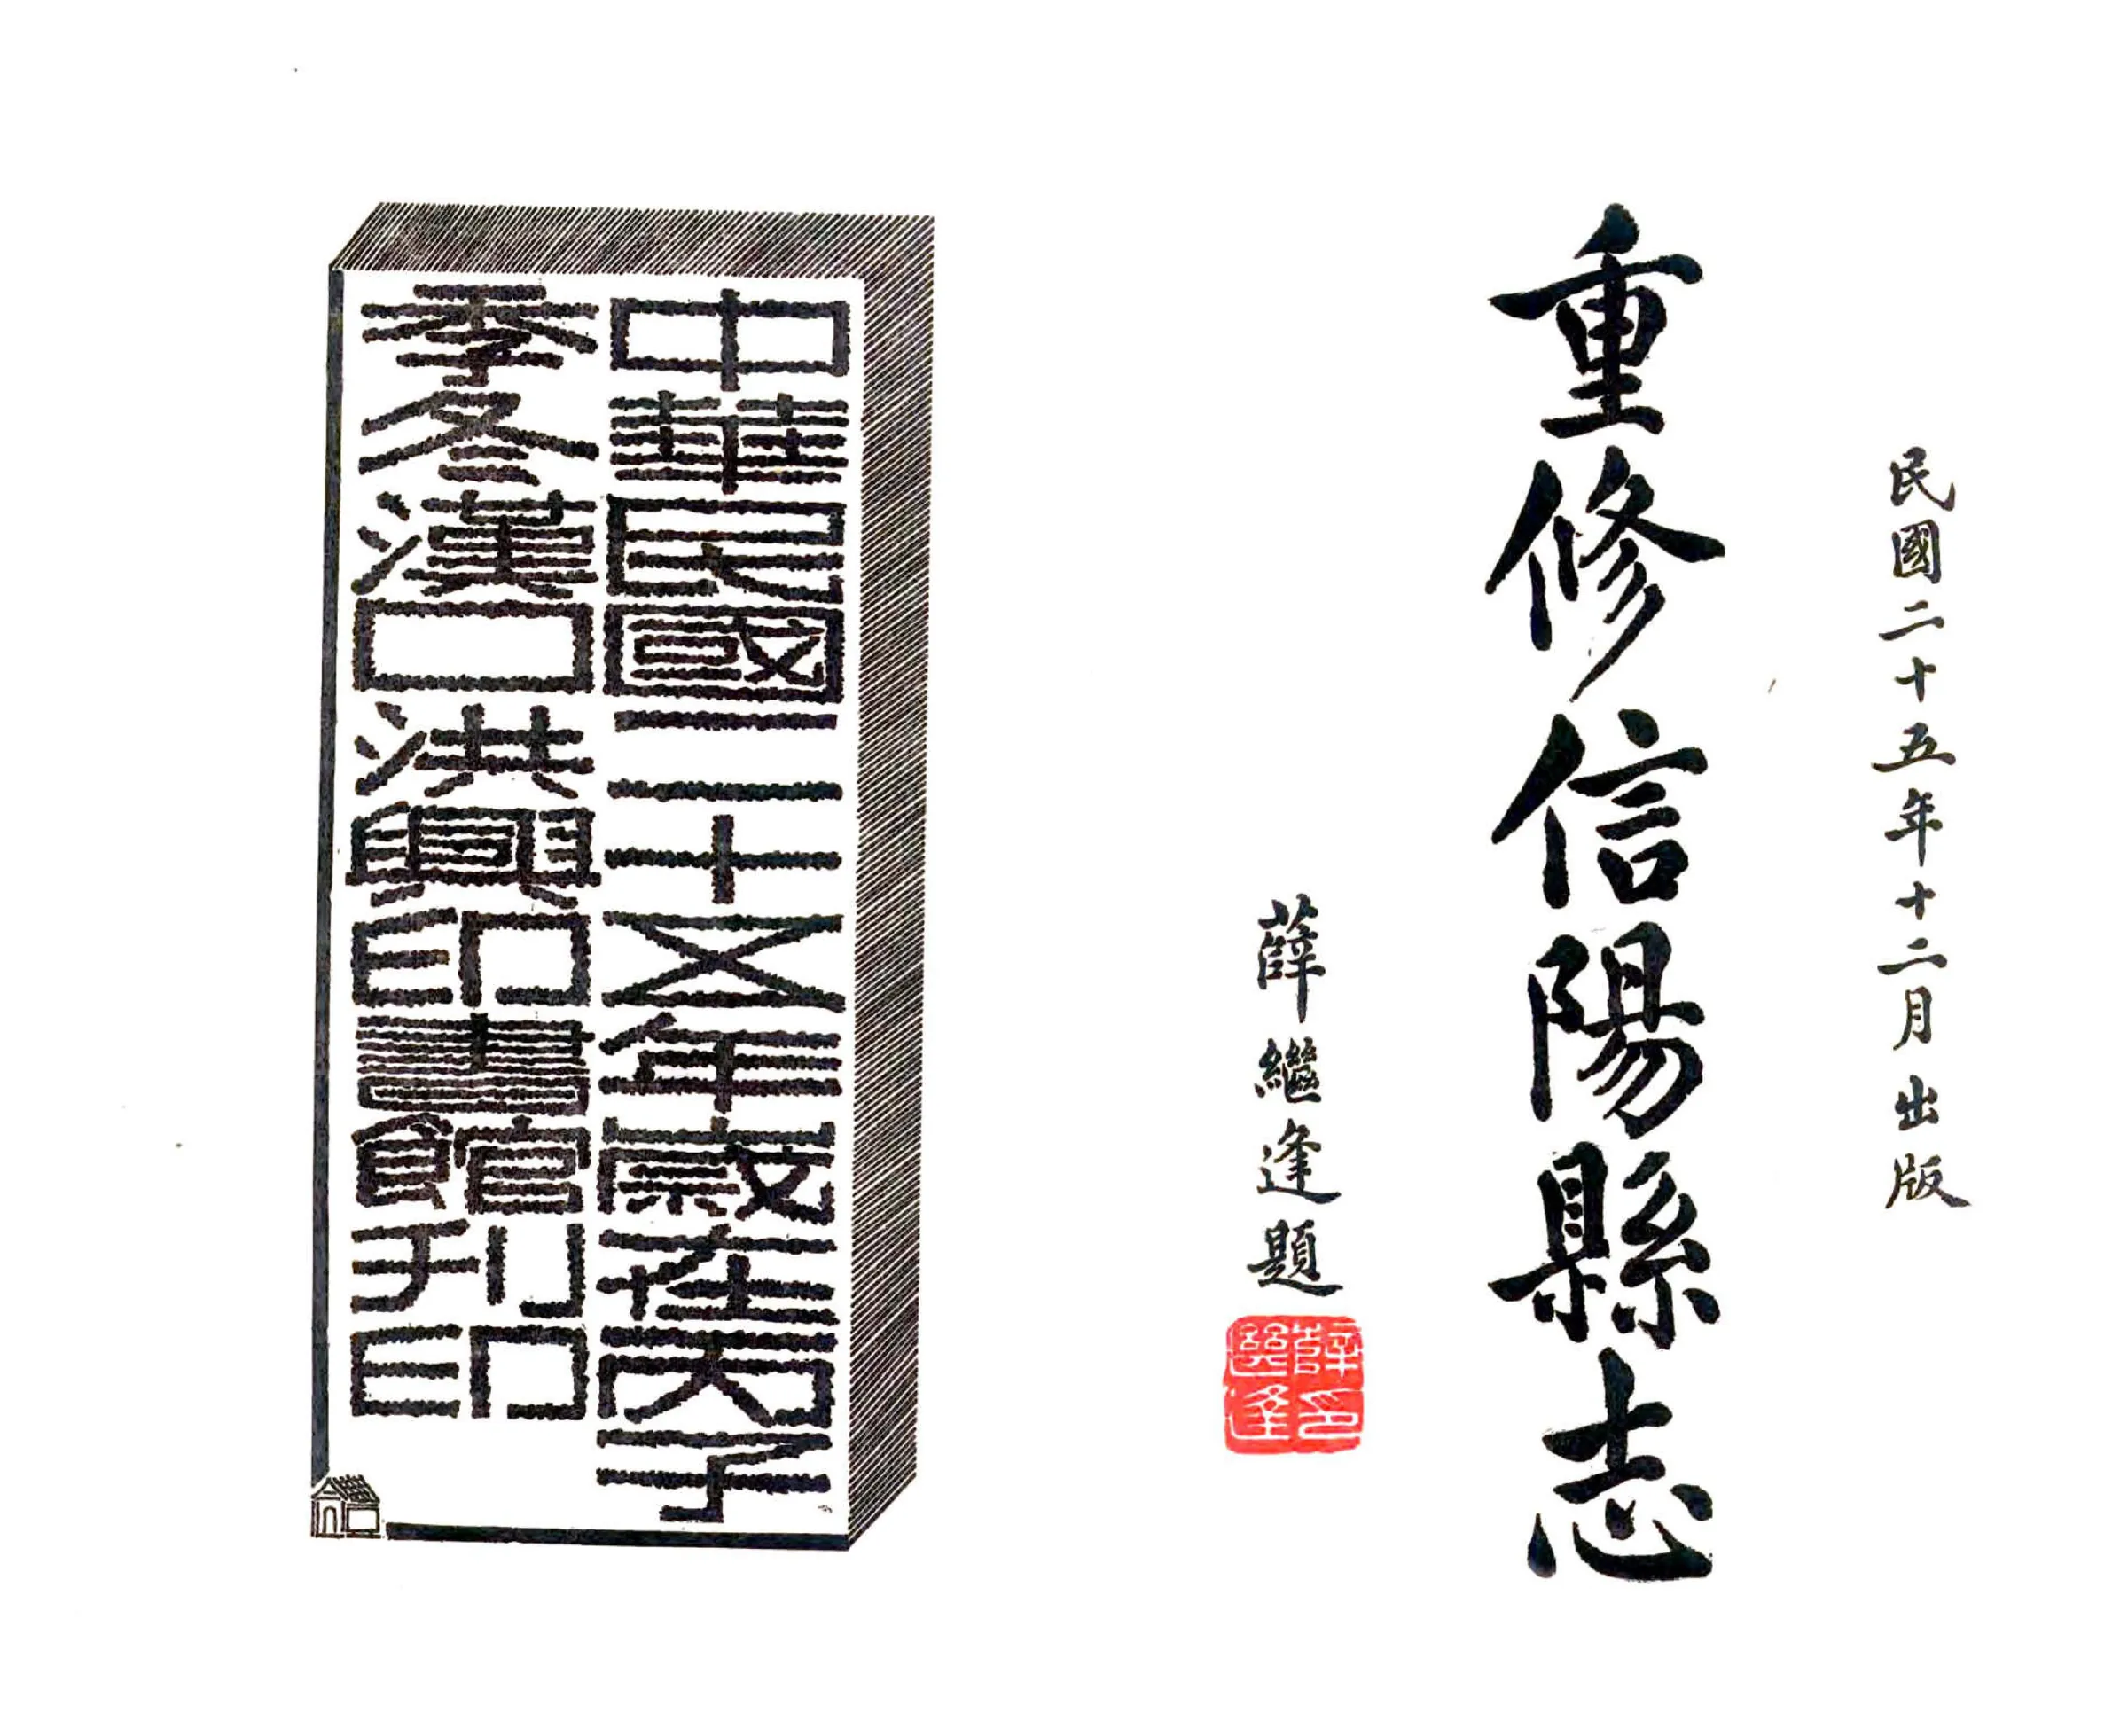 民國二十五年十二月出版
重修信陽縣志
薛繼逢題
薛印
繼逢
中華民國二十五年歲在丙子
季冬漢口洪興印書館刊印